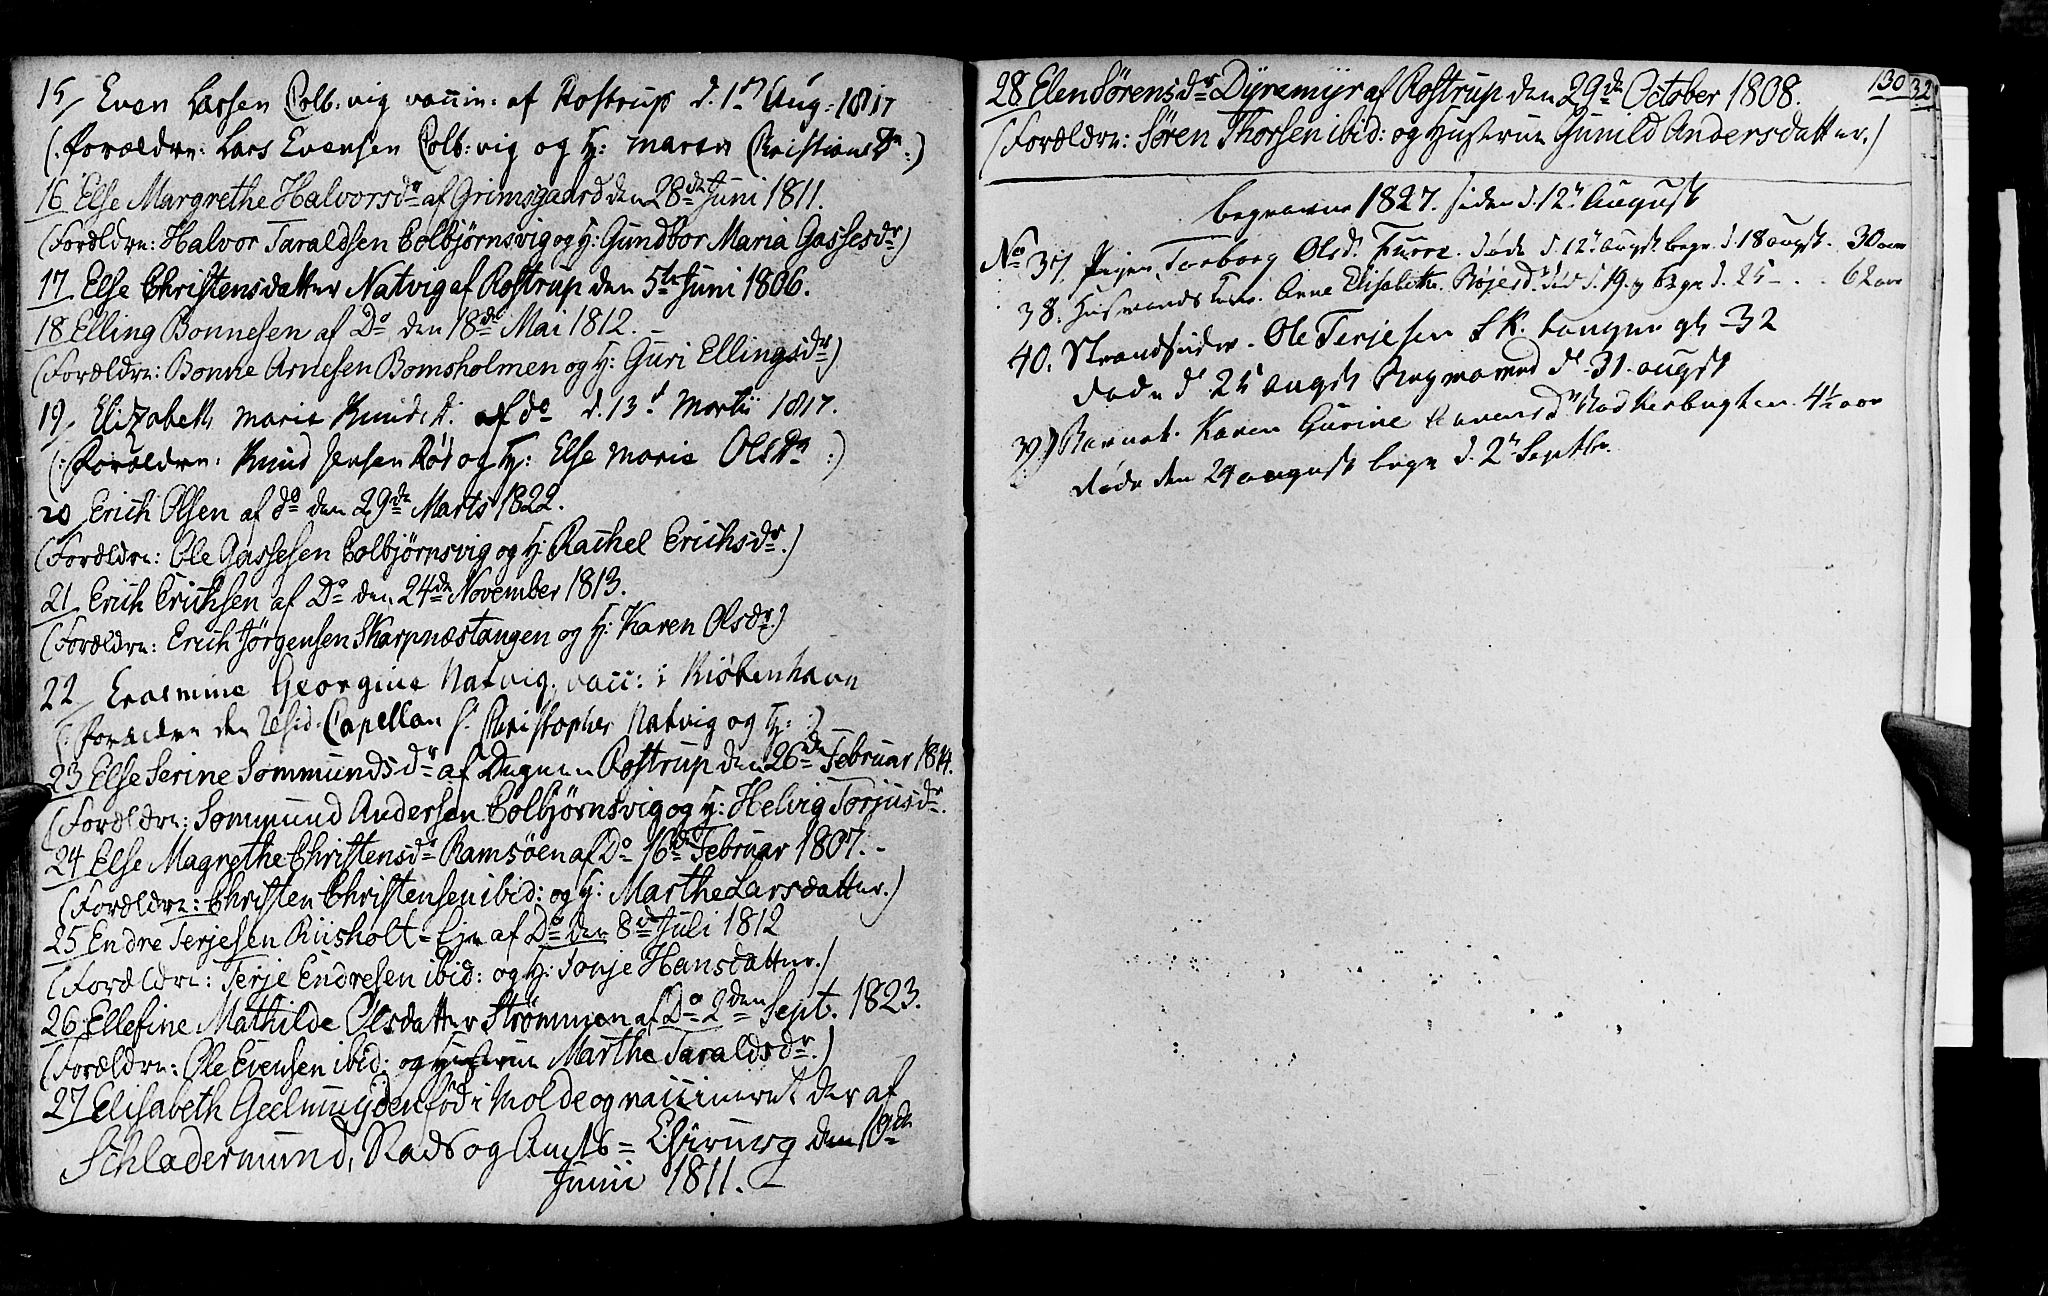 15 Even Larsen Colb:vig vaccin: af Rostrup d. 1st Aug: 1817
(: Forældre: Lars Evensen Colb:vig og H: Maren Christiansdr :)
16 Else Margrethe Halvorsdr af Grimsgaard den 28de Juni 1811.
(Forældre: Halvor Taraldsen Colbjørnsvig og H: Gundbor Maria Gassesdr)
17 Else Christensdatter Natvig af Rostrup den 5te Juni 1806.
18 Elling Bonnesen af Do den 18de Mai 1812. –
(Forældre: Bonne Arnesen Bomsholmen og H: Guri Ellingsdr)
19 Elizabeth Marie Knudsd. af do d. 13d Martii 1817.
(: Forældre: Knud Jensen Rød og H: Else Marie Olsdr :)
20 Erich Olsen af do den 29de Marts 1822.
(Forældre: Ole Gassesen Colbjørnsvig og H: Rachel Erichsdr.)
21 Erich Erichsen af Do den 24de November 1813.
(Forældre: Erich Jörgensen Skarpnæstangen og H: Karen Olsdr.)
22 Erasmine Georgine Natvig. vacc: i Kiøbenhavn
(: Forældre den Resid: Capellan Christopher Natvig og H: :)
23 Else Serine Sommundsdr af Degnen Rostrup den 26de Februar 1814.
(Forældre: Sommund Andersen Colbjørnsvig og H: Helvig Torjusdr.
24 Else Magrethe Christensdr Ramsöen af Do 16de Februar 1807. –
(Forældre: Christen Christensen ibid: og H: Marthe Larsdatter.)
25 Endre Terjesen Riisholt = Eie af Do den 8de Juli 1812
(Forældre: Terje Endresen ibid: og H: Tonje Hansdatter.)
26 Ellefine Mathilde Olsdatter Strömmen af Do 2den Sept. 1823.
(Forældre: Ole Evensen ibid: og Hustrue Marthe Taraldsdr.)
27 Elisabeth Geelmuyden föd i Molde og vaccineret der af
Schladermund, Stads og Amts = Chirurg den 10de
Junii 1811. –
130 32
28 Elen Sörensdr Dyremyr af Rostrup den 29de October 1808.
(Forældre: Sören Thorsen ibid: og Hustrue Gunild Andersdatter.)
Begravne 1827. siden d. 12te August
No 37, Pigen Torborg Olsd. Furre. døde d. 12te Augst begr. d. 18 augst. 30 aar
38. Husmands Anne Elisabeth Röjersd. død d. 19. begr d. 25 – . . 62 aar
40. Strandsidder. Ole Terjesen Sk.tangen gl. 32
døde d. 25 augst Begraved d. 31. augst
39) Barnet. Karen Gurine 4½ aar
døde den 29 august begr d. 2n Septbr.